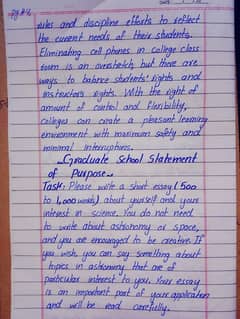 rules and discipline efforts to reflect
the current needs of their students.
Eliminating cell phones in college class
room is an overstretch, but there are
ways to balance students' rights and
instructors rights. With the right of
amount of control and flexibility,
colleges can create a pleasant learning
environment with maximum safety and
minimal interruptions.
Graduate School Statement
of Purpose
Task: Please write a short essay (500
to 1,000 words) about yourself and your
interest in science. You do not need
to write about astronomy or space,
and you are encouraged to be creative. If
you wish, you can say something about
topics in astronomy that are of
particular interest to you. Your essay
is an important part of your application
and will be read carefully.